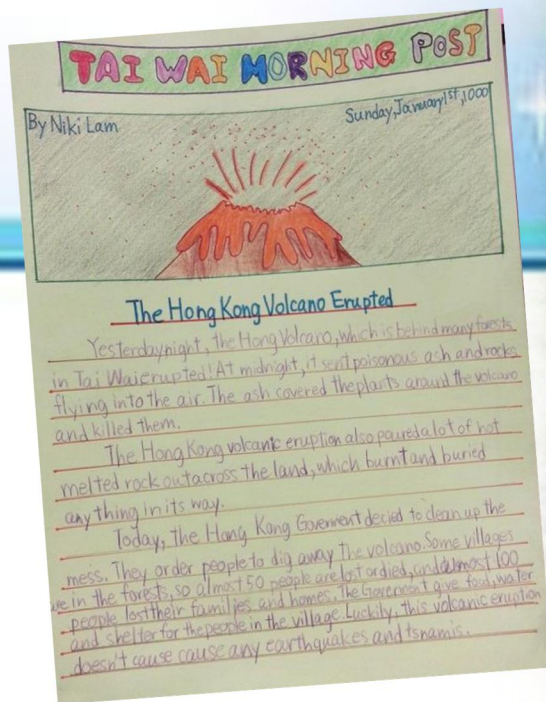 TAI WAI MORNING POST
By Niki Lam
Sunday, January 1st, 1000
The Hong Kong Volcano Erupted
Yesterday night, the Hong Volcano, which is behind many forests
in Tai Wai erupted! At midnight, it sent poisonous ash and rocks
flying into the air. The ash covered the plants around the volcano
and killed them.
The Hong Kong volcanic eruption also poured a lot of hot
melted rock out across the land, which burnt and buried
anything in its way.
Today, the Hong Kong Goverment decied to clean up the
mess. They order people to dig away the volcano. Some villages
in the forests, so almost 50 people are lost or died, and almost 100
people lost their families and homes. The Goverment give food, water
and shelter for the people in the village. Luckily, this volcanic eruption
doesn't cause cause any earthquakes and tsnamis.